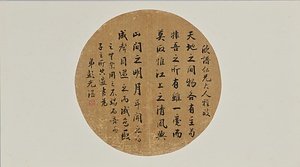 仁兄大人雅政
天地之間物各有主苟
非吾之所有雖一毫而
莫取惟江上之清風與
山間之明月耳
目遇之而成色取
之不竭
子之所共適
弟彭光